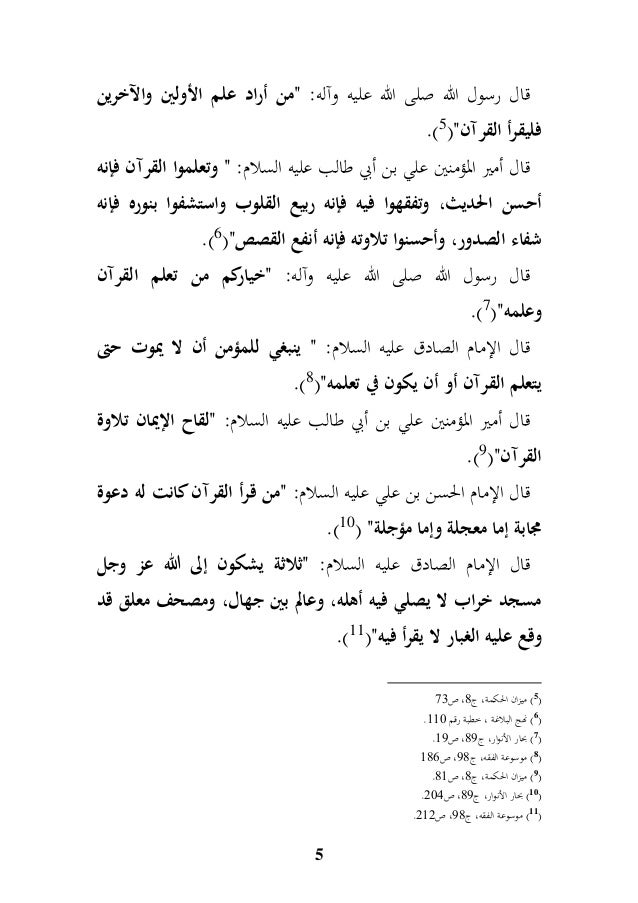 قال رسول الله صلى الله عليه وآله: "من أراد علم الأولين والآخرين
فليقرأ القرآن"(5).
قال أمير المؤمنين علي بن أبي طالب عليه السلام: " وتعلموا القرآن فإنه
أحسن الحديث، وتفقهوا فيه فإنه ربيع القلوب واستشفوا بنوره فإنه
شفاء الصدور، وأحسنوا تلاوته فإنه أنفع القصص"(6).
قال رسول الله صلى الله عليه وآله: "خياركم من تعلم القرآن
وعلمه"(7).
قال الإمام الصادق عليه السلام: " ينبغي للمؤمن أن لا يموت حتى
يتعلم القرآن أو أن يكون في تعلمه"(8).
قال أمير المؤمنين علي بن أبي طالب عليه السلام: "لقاح الإيمان تلاوة
القرآن"(9).
قال الإمام الحسن بن علي عليه السلام: "من قرأ القرآن كانت له دعوة
مجابة إما معجلة وإما مؤجلة" (10).
قال الإمام الصادق عليه السلام: "ثلاثة يشكون إلى الله عز وجل
مسجد خراب لا يصلي فيه أهله، وعالم بين جهال، ومصحف معلق قد
وقع عليه الغبار لا يقرأ فيه"(11).
(5) ميزان الحكمة، ج8، ص73
(6) نهج البلاغة ، خطبة رقم 110.
(7) بحار الأنوار، ج89، ص19.
(8) موسوعة الفقه، ج98، ص186
(9) ميزان الحكمة، ج8، ص81.
(10) بحار الأنوار، ج89، ص204.
(11) موسوعة الفقه، ج98، ص212.
5